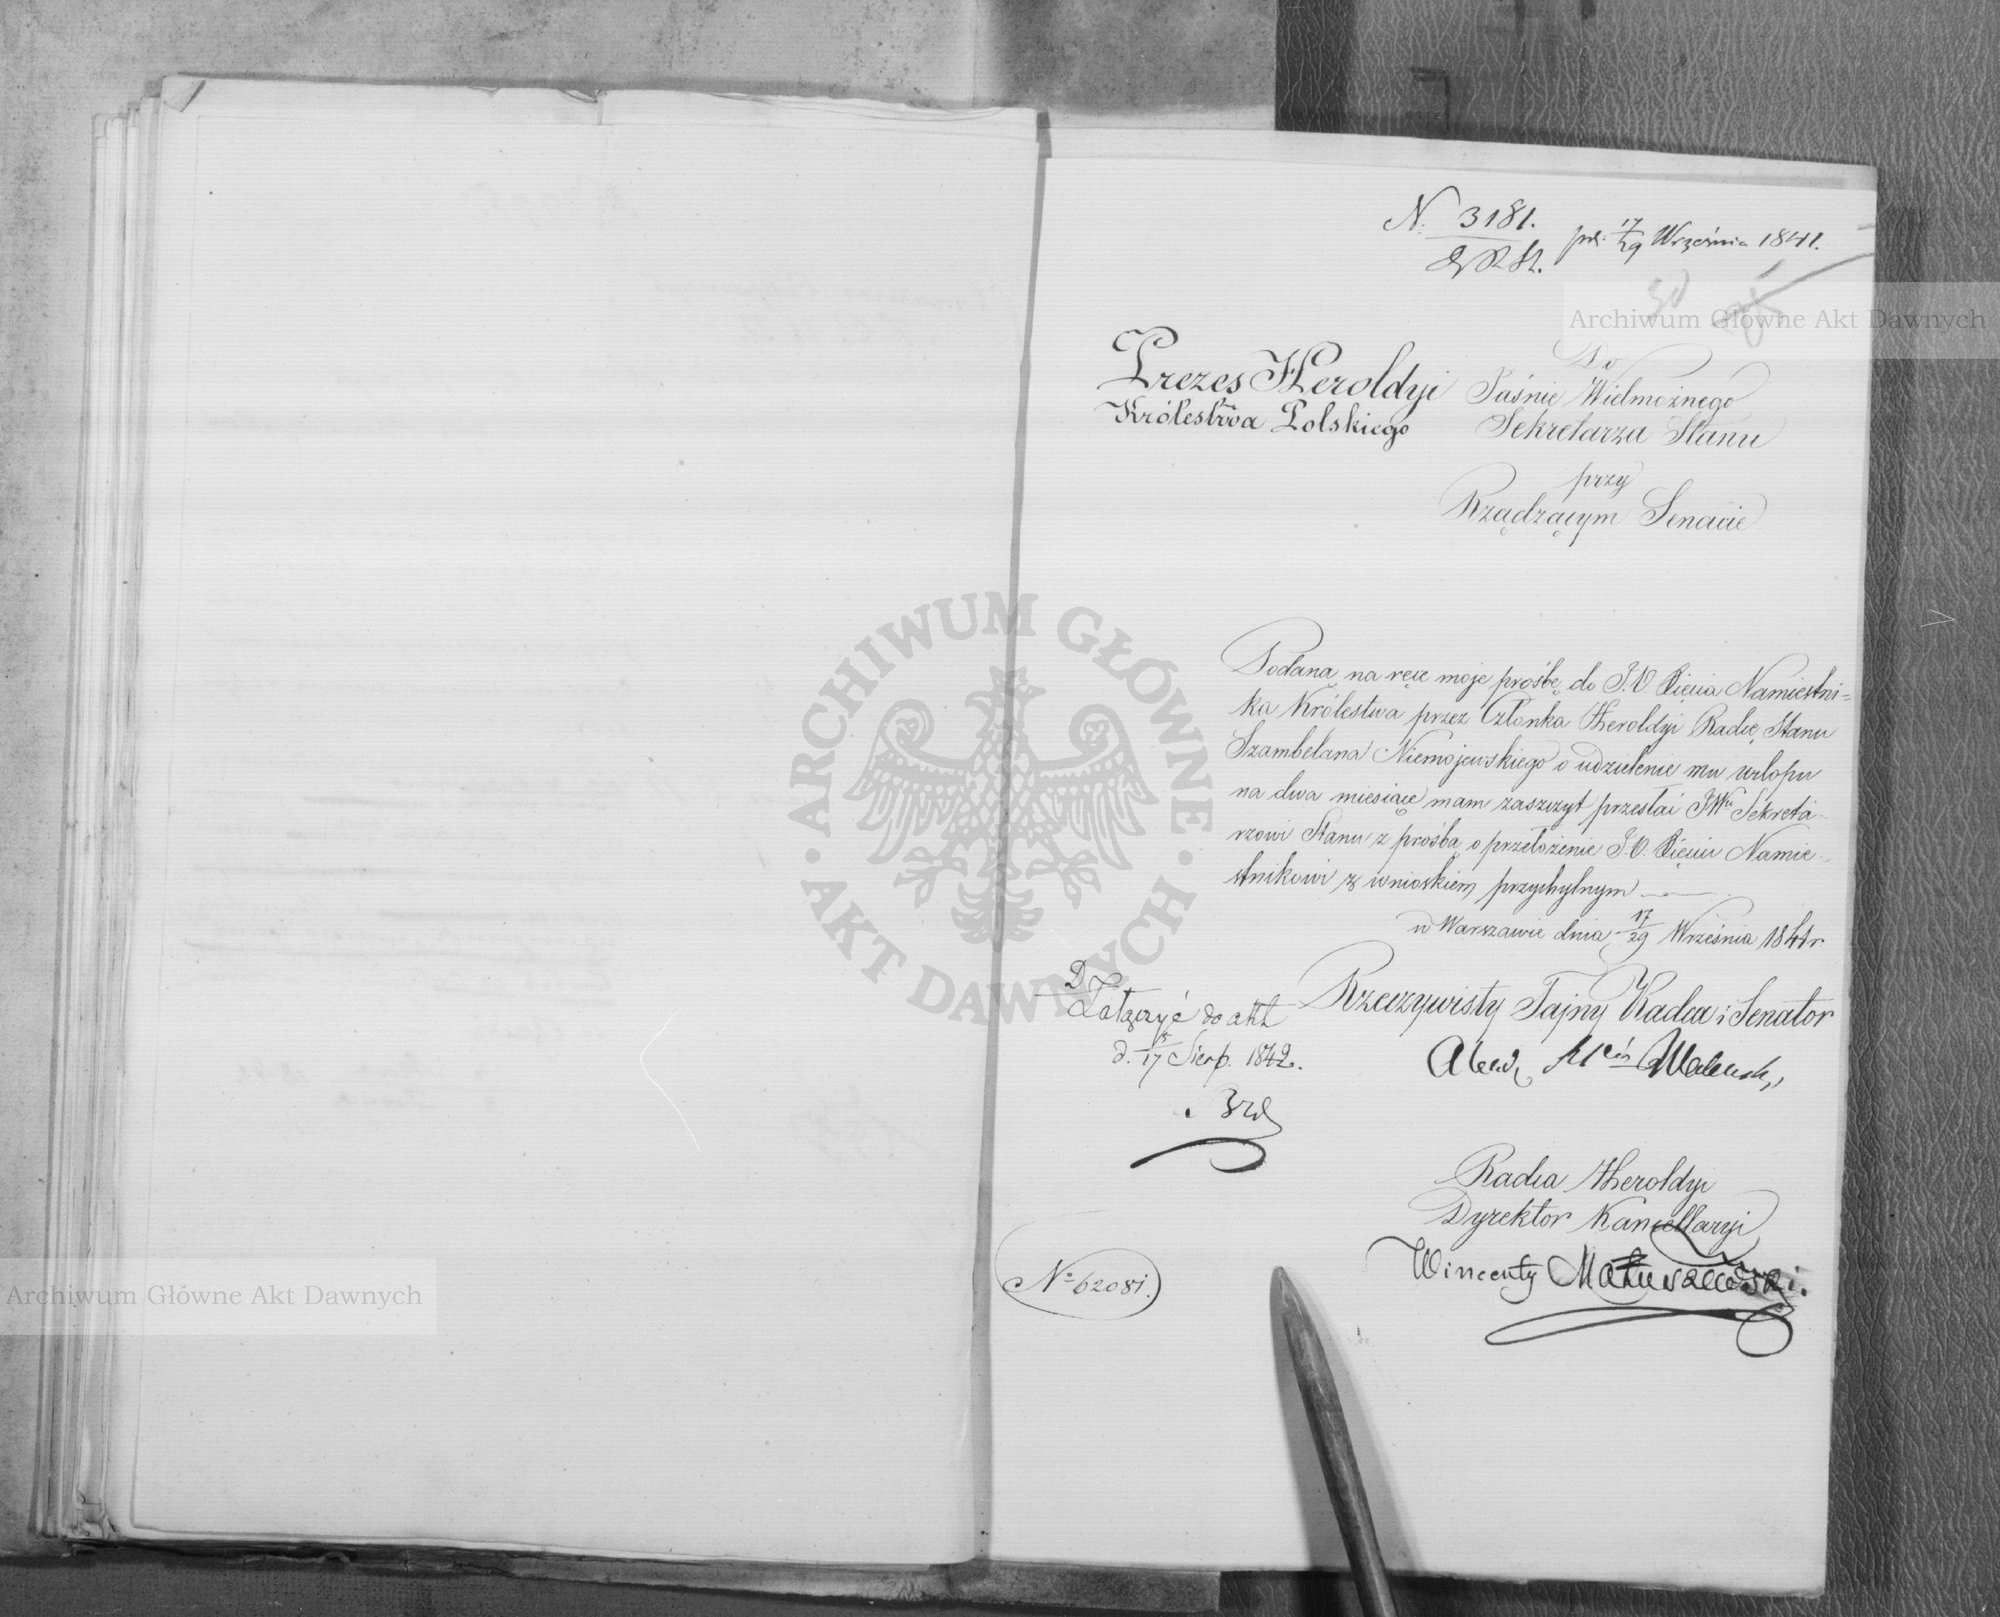 N. 3181.
pr: 17/29 Września 1841.
Prezes Heroldyi
Królestwa Polskiego
Do
Jaśnie Wielmożnego
Sekretarza Stanu
przy
Rządzącym Senacie
Podana na ręce moje prośbę do J.O. Xięcia Namiestni=
ka Królestwa przez Członka Heroldyi Radcę Stanu
Szambelana Niemojewskiego o udzielenie mu urlopu
na dwa miesiące mam zaszczyt przesłać JWu Sekreta-
rzowi Stanu z prośbą o przełożenie J.O. Xięciu Namie-
stnikowi z wnioskiem przychylnym
w Warszawie dnia 17/29 Września 1841 r
Rzeczywisty Tajny Radca i Senator
Załączyć do akt
d. 5/17 Sierp. 1842.
Radca Heroldyi
Dyrektor Kancellaryi
Wincenty Matuszewski.
No 62081.
Archiwum Główne Akt Dawnych
Archiwum Główne Akt Dawnych
ARCHIWUM GŁÓWNE · AKT DAWNYCH ·